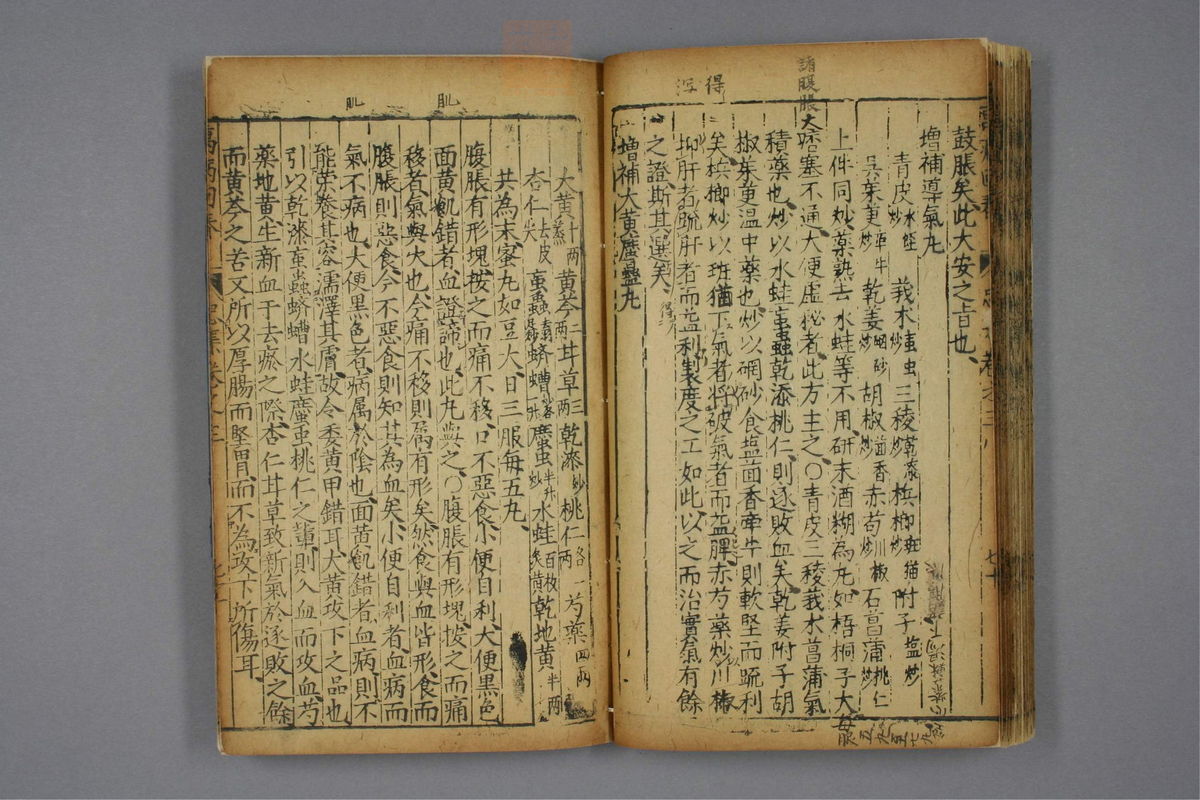 鼓脹矣此大安之旨也
增補導氣丸
青皮水蛭炒 莪朮䖟虫炒 三稜乾漆炒 梹榔斑猫炒 附子塩炒
吳茱萸牽牛炒 乾姜硇砂炒 胡椒茴香炒 赤芍川椒炒 石菖蒲桃仁炒
上件同炒藥熟去水蛙等不用研末酒糊為丸如梧桐子大每服五
諸腹脹大痞塞不通大便虛秘者此方主之○青皮三稜莪朮菖蒲氣
積藥也炒以水蛙䖟蟲乾漆桃仁則逐敗血矣乾姜附子胡
椒茱萸溫中藥也炒以硇砂食塩茴香牽牛則軟堅而疏利
矣梹榔炒以斑猫下氣者將破氣者而益脾赤芍藥炒川椒
抑肝者疏肝者而益利製度之工如此以之而治實氣有餘
之證斯其選矣
增補大黃䗪蟲丸
得
肌
肌
大黃十兩蒸 黃芩二兩 甘草三兩 乾漆炒 桃仁各一兩 芍藥四兩
杏仁去皮尖 䖟蟲去翅足炒 蠐螬炒各一升 䗪虫半升炒 水蛙百枚炙黃 乾地黃半兩
共為末蜜丸如豆大日三服每五丸
腹脹有形塊按之而痛不移口不惡食小便自利大便黑色
面黃肌錯者血證諦也此丸與之○腹脹有形塊按之而痛
移者氣與火也今痛不移則屬有形矣然食與血皆形食而
腹脹則惡食今不惡食則知其為血矣小便自利者血病而
氣不病也大便黑色者病属於陰也面黃肌錯者血病則不
能榮養其容濡澤其膚故令委黃甲錯耳大黃攻下之品也
引以乾漆䖟蟲蠐螬水蛙䗪虫桃仁之軰則入血而攻血芍
藥地黃生新血于去瘀之際杏仁甘草致新氣於逐敗之餘
而黃芩之苦又所以厚腸而堅胃而不為攻下所傷耳